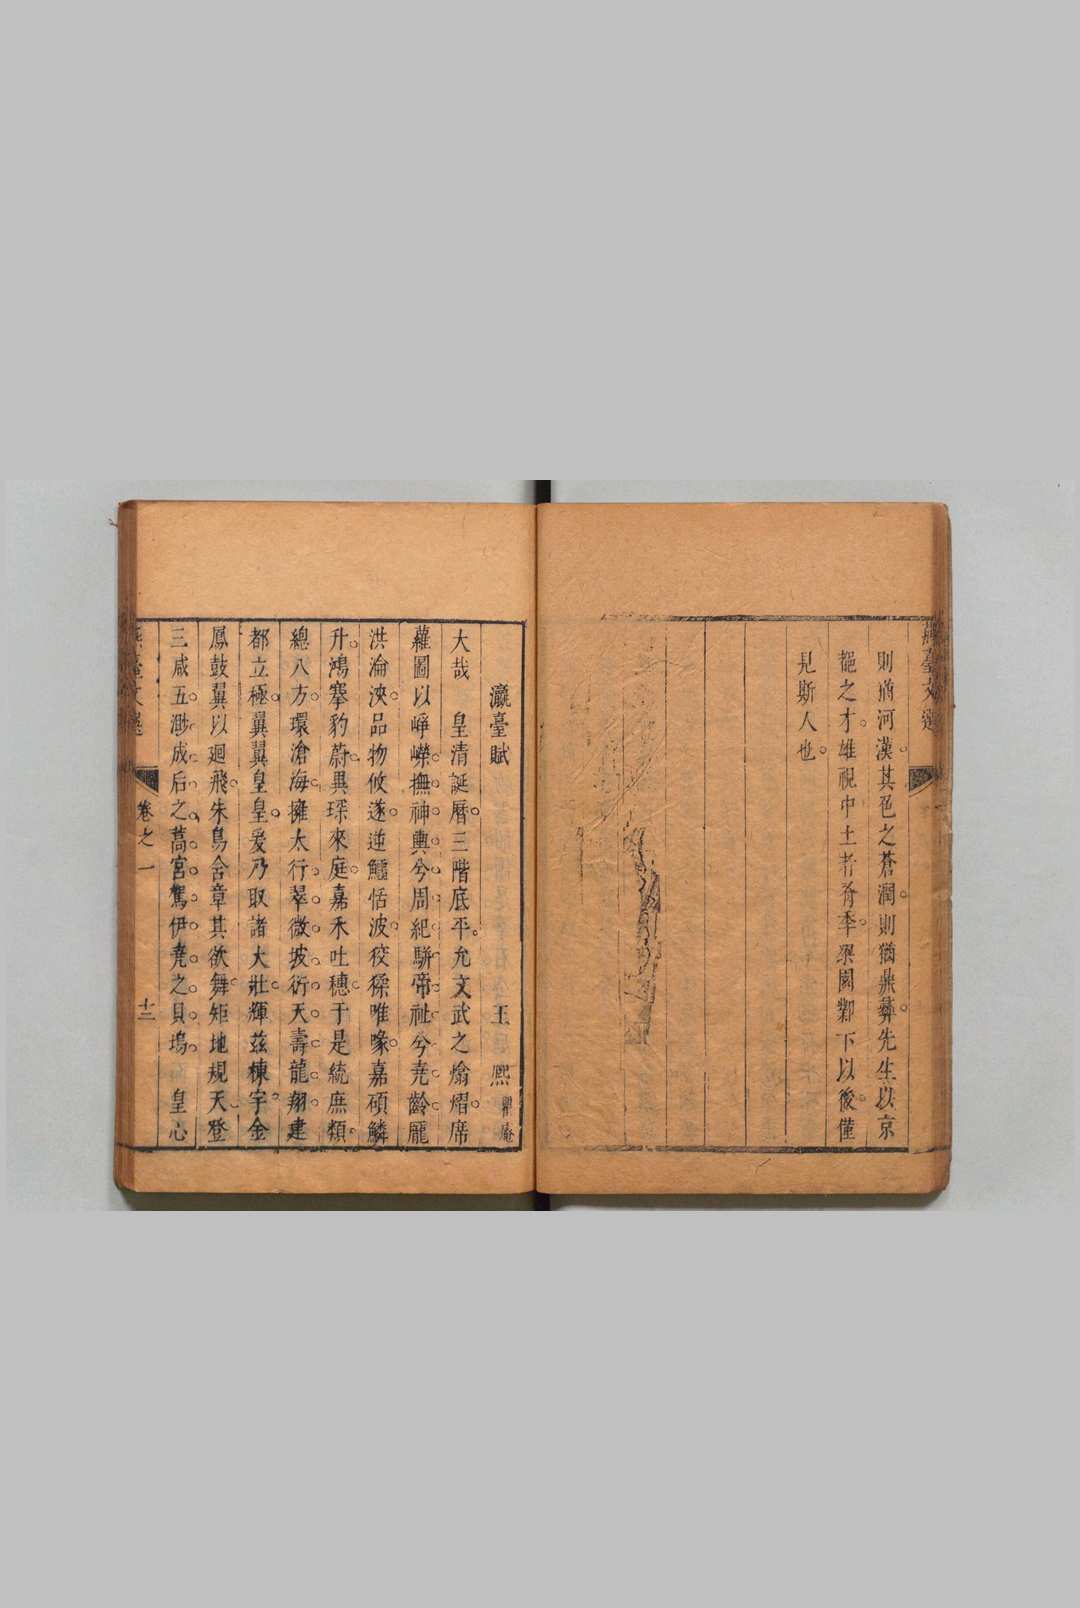 則猶河漢其色之蒼潤則猶鼎彝先生以京
龍之才雄視中土者有季梁園鄴下以後僅
見斯人也
瀛臺賦 王熙
大哉 皇清誕曆三階底平允文武之熻熠席
蘿圖以崢嶸撫神輿兮周紀駢帝祉兮堯齡龐
洪淪浹品物攸遂逆鱷恬波狡猱唯喙嘉碩鱗
升鴻搴豹蔚異琛來庭嘉禾吐穗于是統庶類
總八方環滄海擁太行翠微坡衍天壽龍翔建
都立極翼翼皇皇爰乃取諸大壯輝茲棟宇金
鳳鼓翼以廻飛朱鳥含章其欲舞矩地規天登
三咸五渺成后之蒿宮駕伊堯之貝塢 皇心
燕臺文選
卷之一
十二